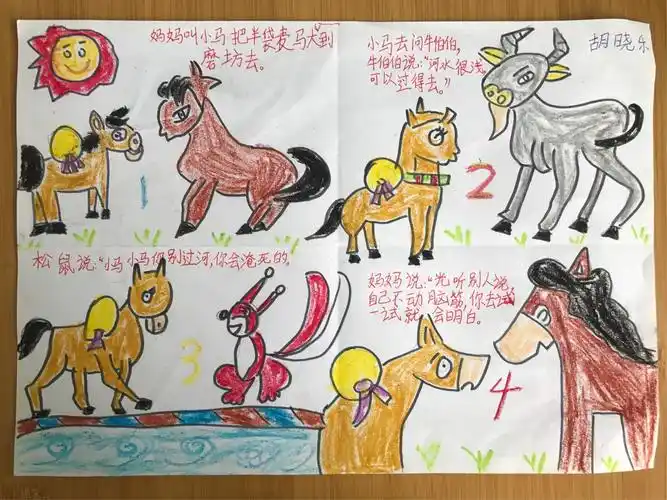 妈妈叫小马把半袋麦马大到
磨坊去。
1
小马去问牛伯伯,
牛伯伯说:“河水很浅。
可以过得去。”
胡晓乐
2
松鼠说:“小马小马你别过河,你会淹死的。
3
妈妈说:“光听别人说
自己不动脑筋,你去试
一试就会明白。
4